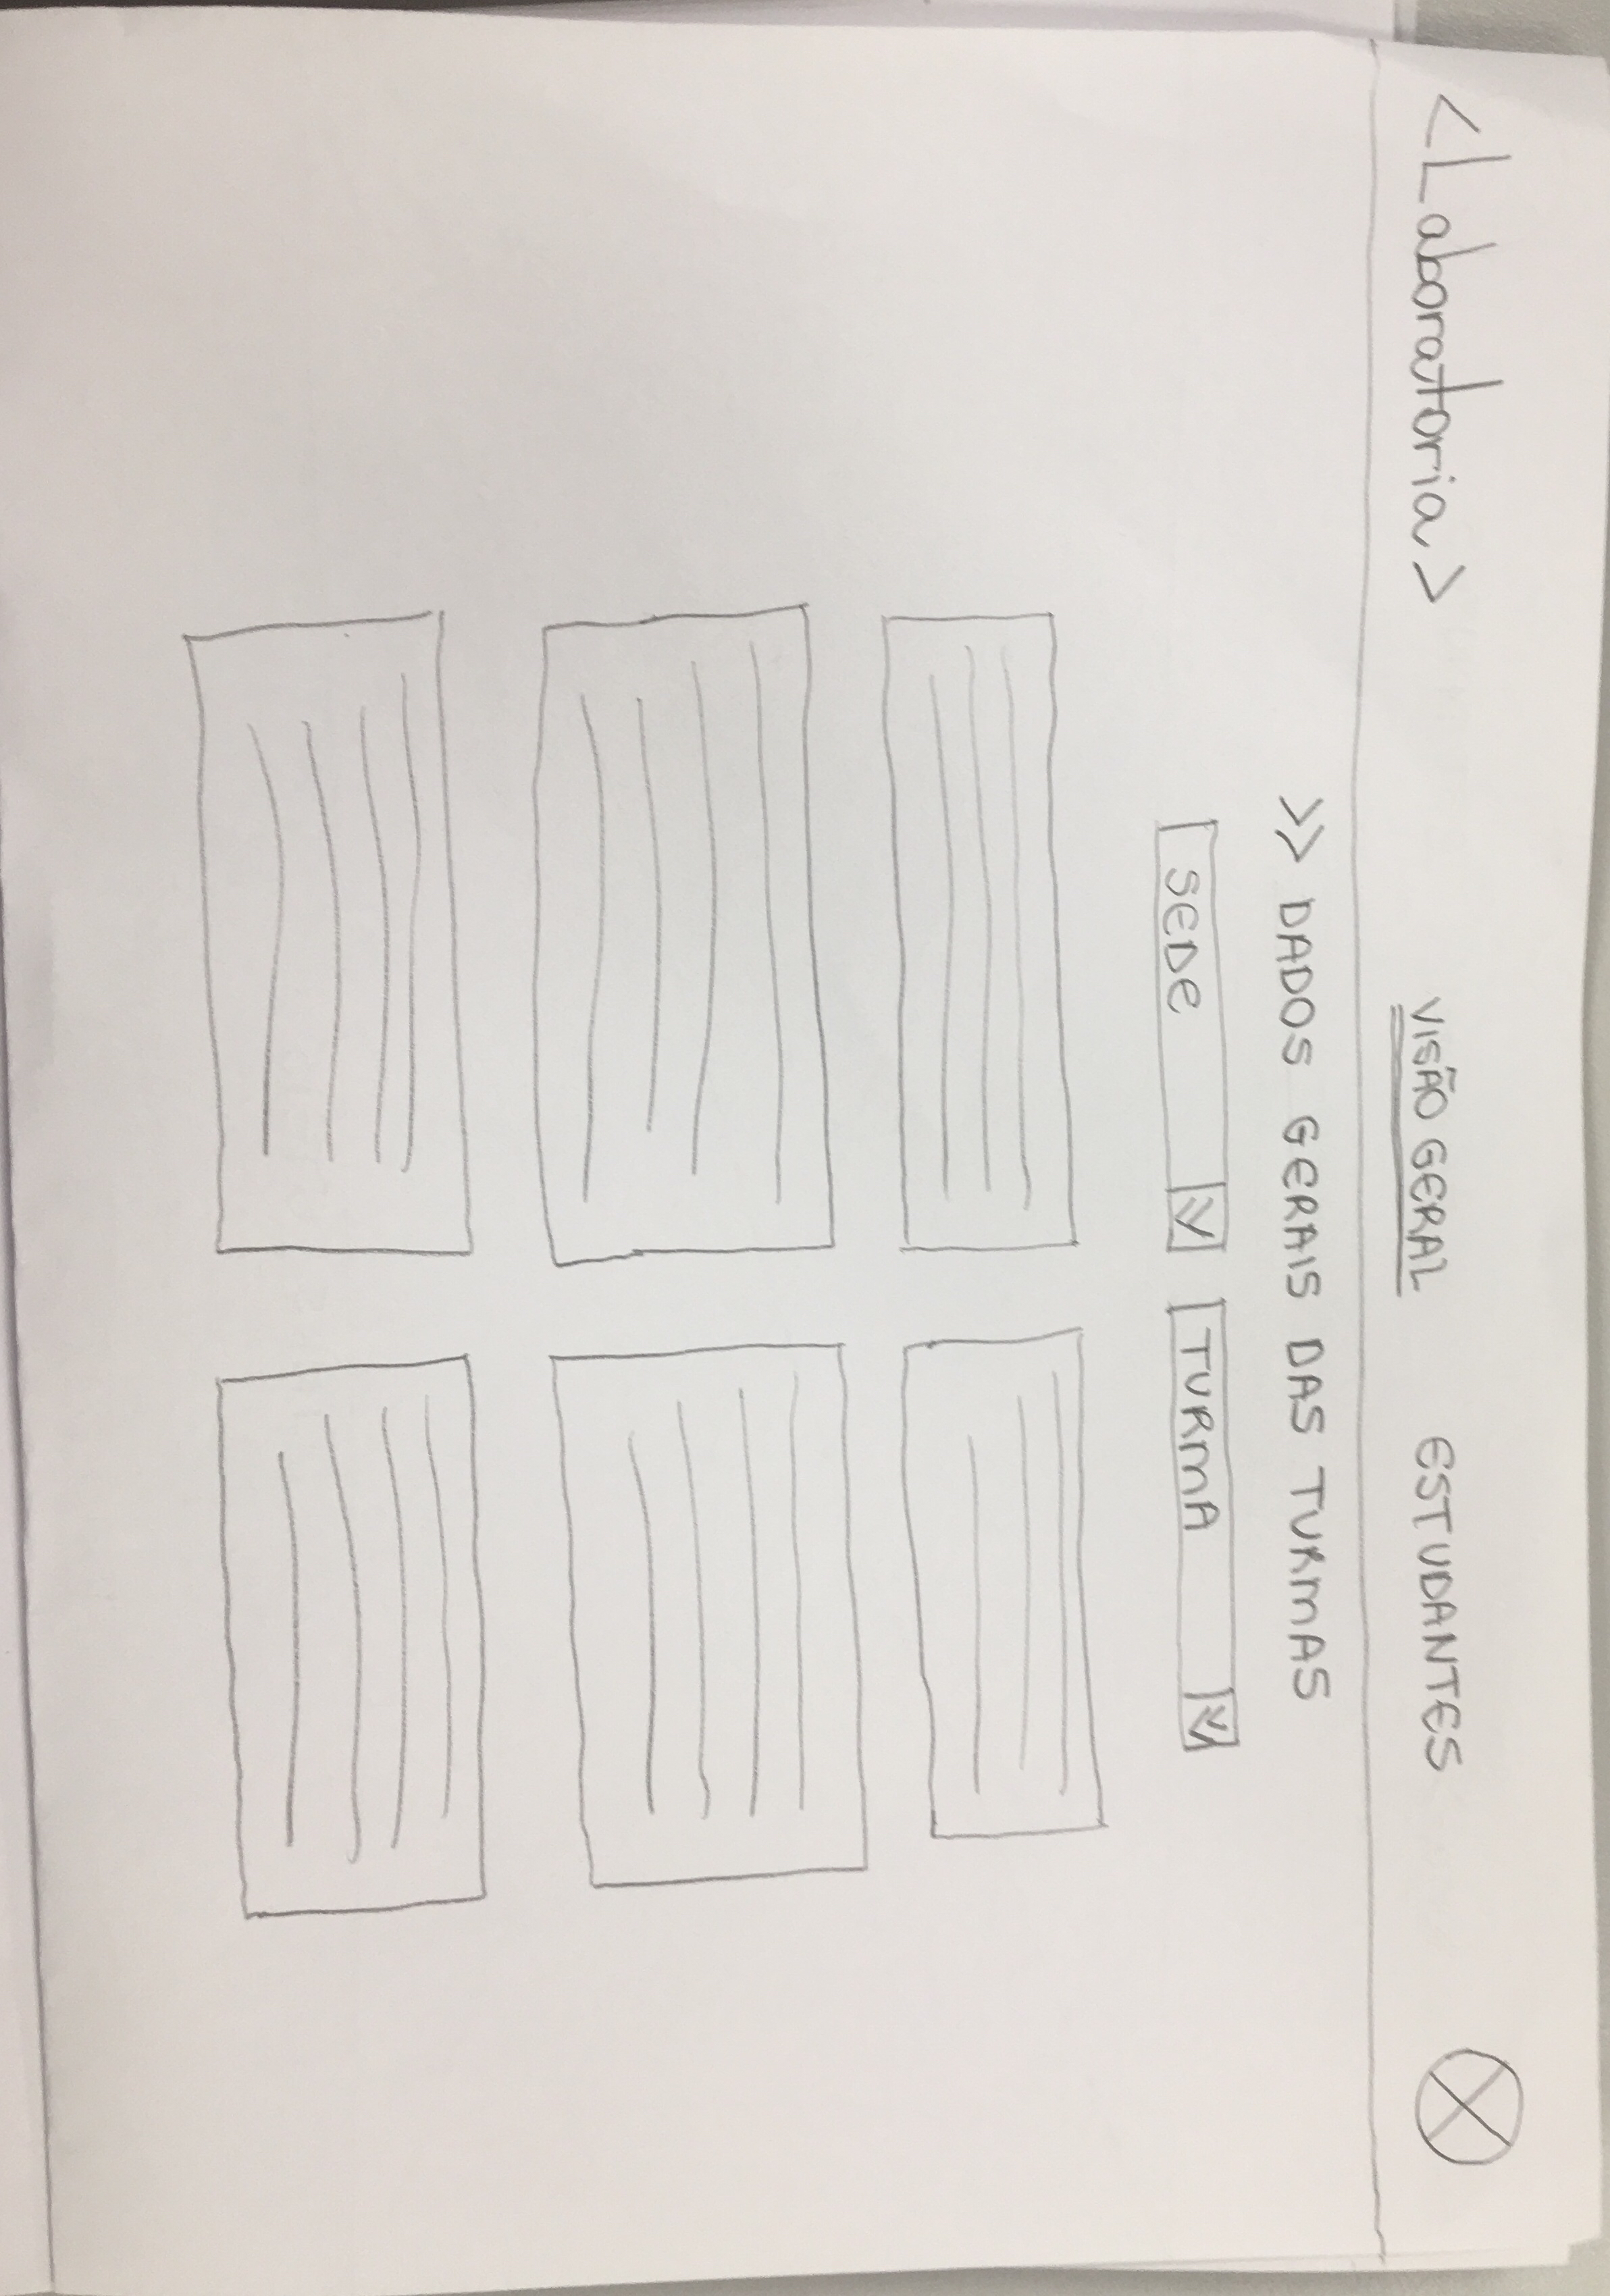 <Laboratoria> VISÃO GERAL ESTUDANTES
>> DADOS GERAIS DAS TURMAS
SEDE TURMA